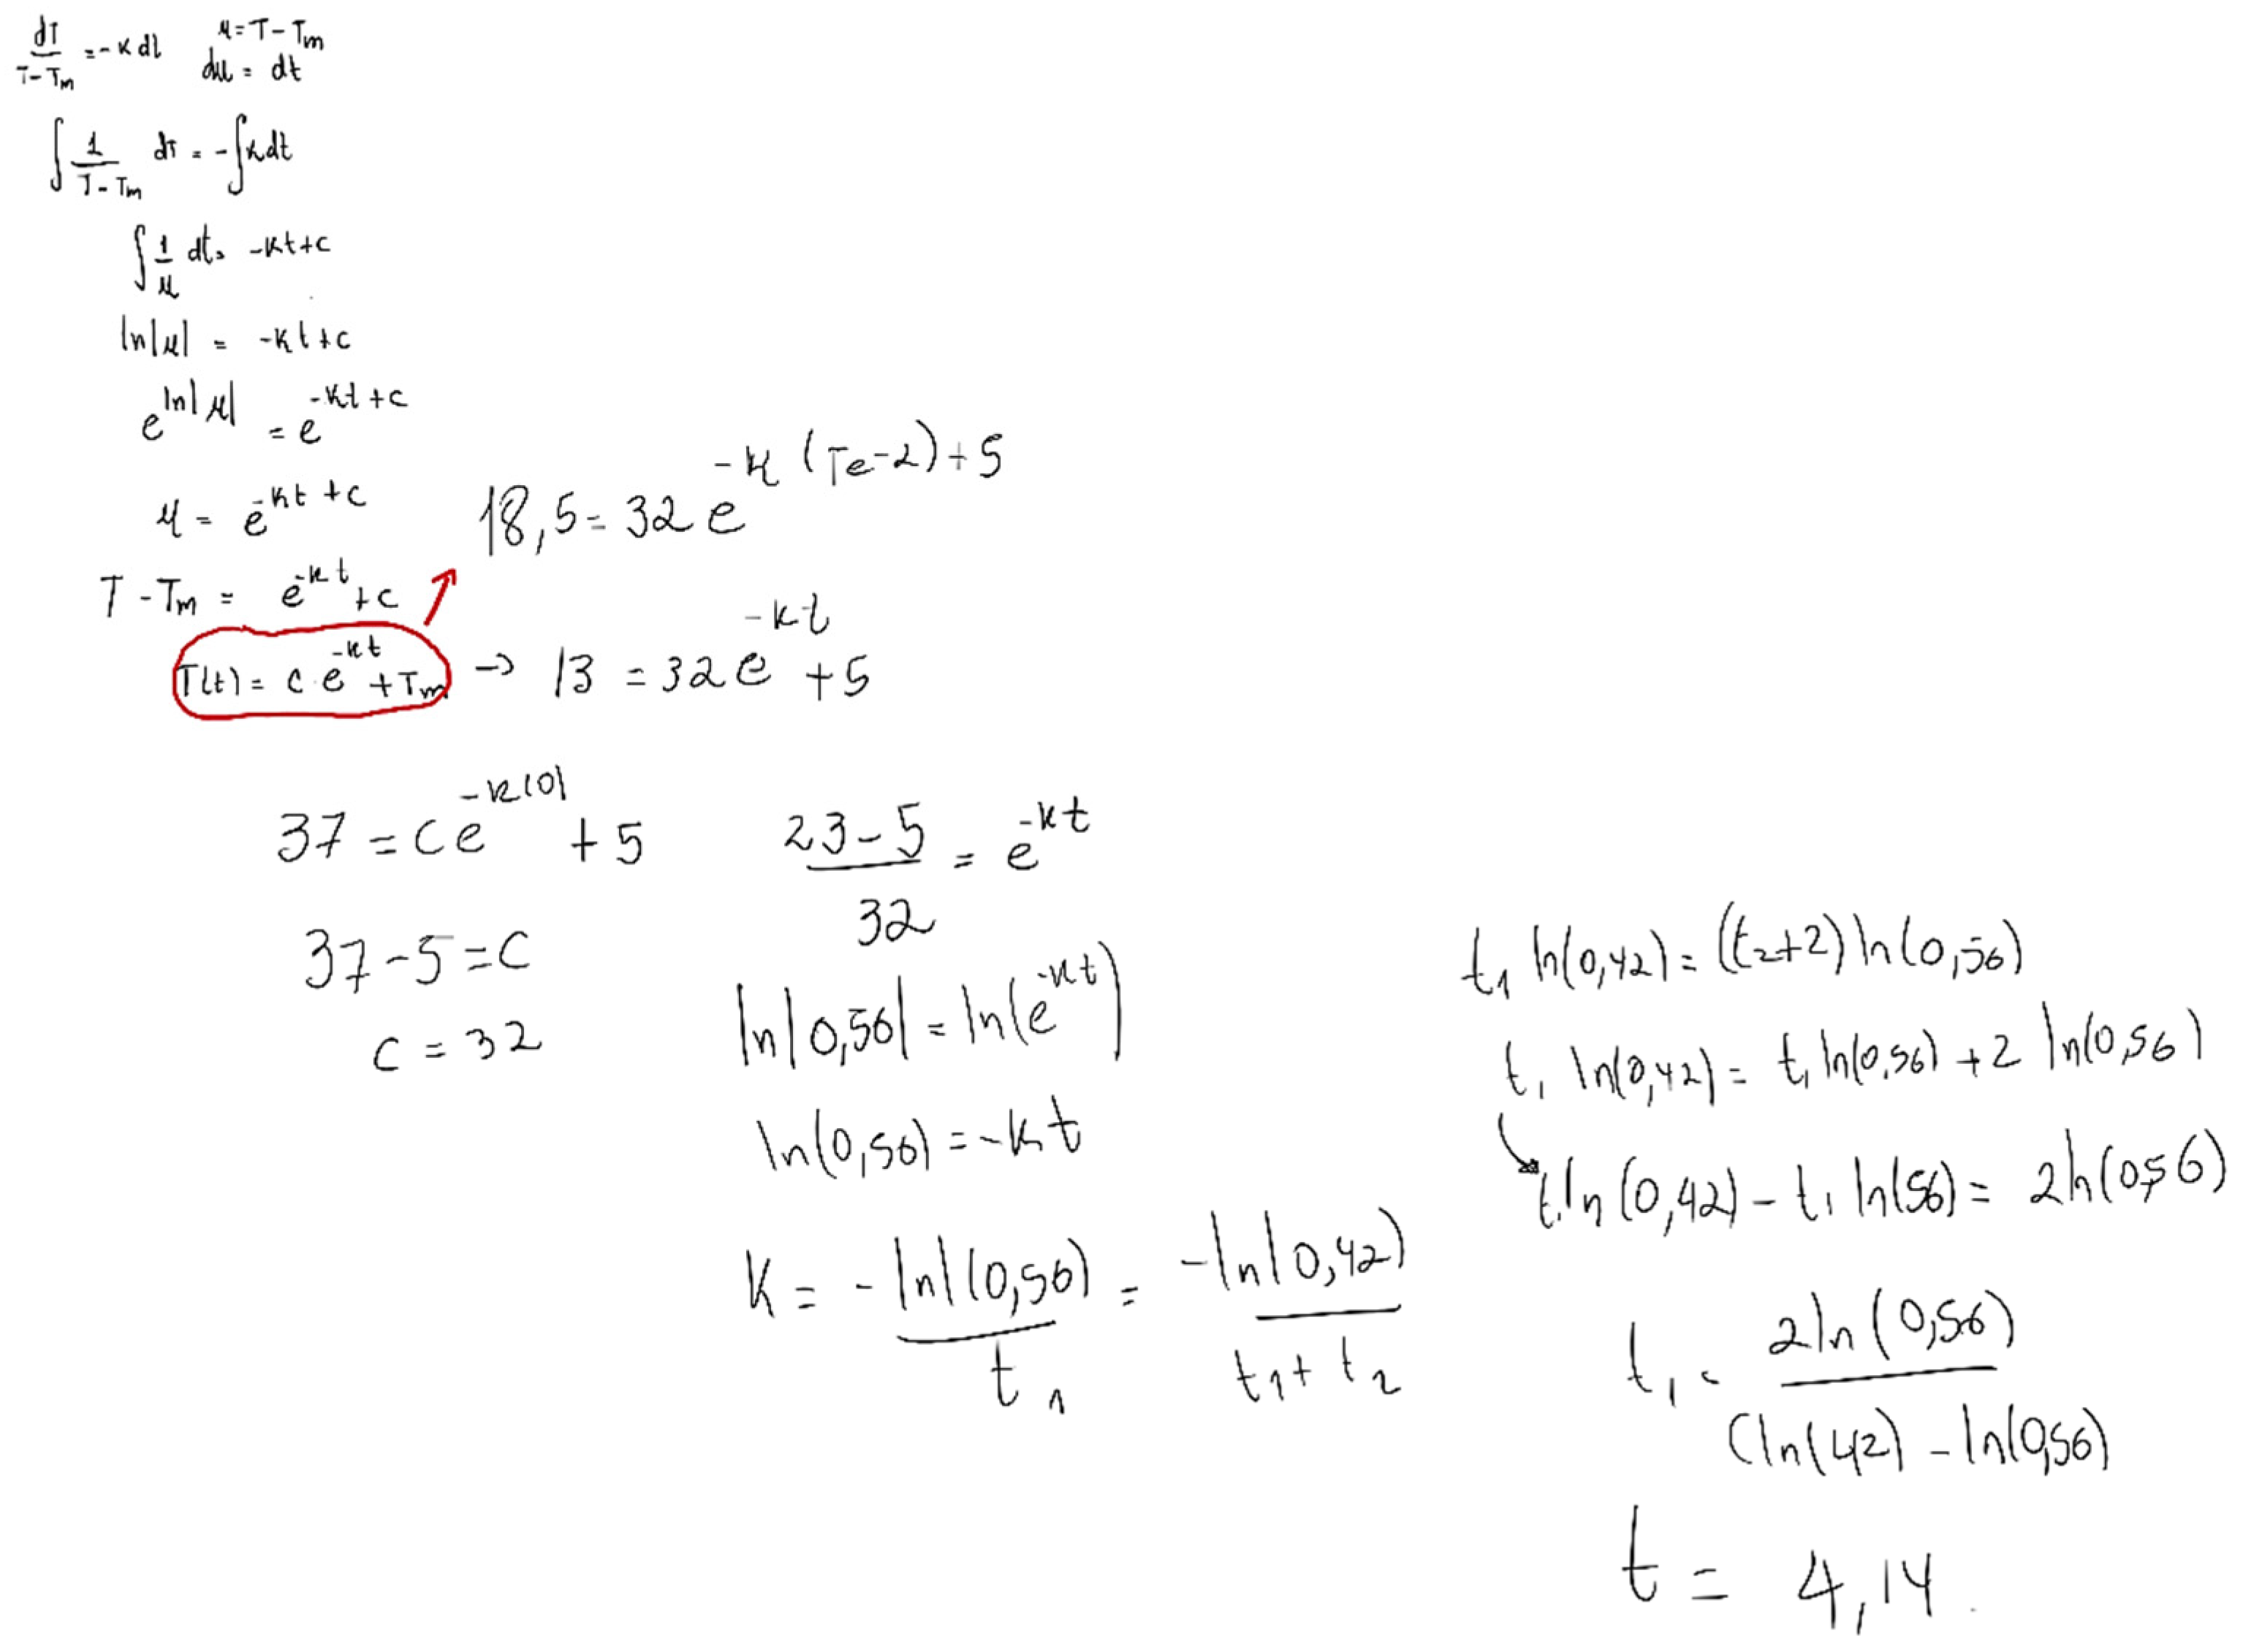 dT/(T-Tm) = -k dt    u = T-Tm
du = dt
∫ 1/(T-Tm) dT = -∫k dt
∫ 1/u dt = -kt+c
ln|u| = -kt+c
e^(ln|u|) = e^(-kt+c)
u = e^(-kt+c)
T-Tm = e^(-kt)+c
T(t) = c·e^(-kt)+Tm
18,5 = 32 e^(-k(Te-2)+5)
→ 13 = 32 e^(-kt) + 5
37 = c e^(-k(0)) + 5
37-5 = c
c = 32
(23-5)/32 = e^(-kt)
ln|0,56| = ln(e^(-kt))
ln(0,56) = -kt
K = -ln|(0,56)/t1 = -ln|0,42)/(t1+t2)
t1 ln(0,42) = (t2+2) ln(0,56)
t1 ln(0,42) = t1 ln(0,56) + 2 ln(0,56)
t1 ln(0,42) - t1 ln(56) = 2 ln(0,56)
t1 = 2ln(0,56)/(ln(42) - ln(0,56)
t = 4,14.